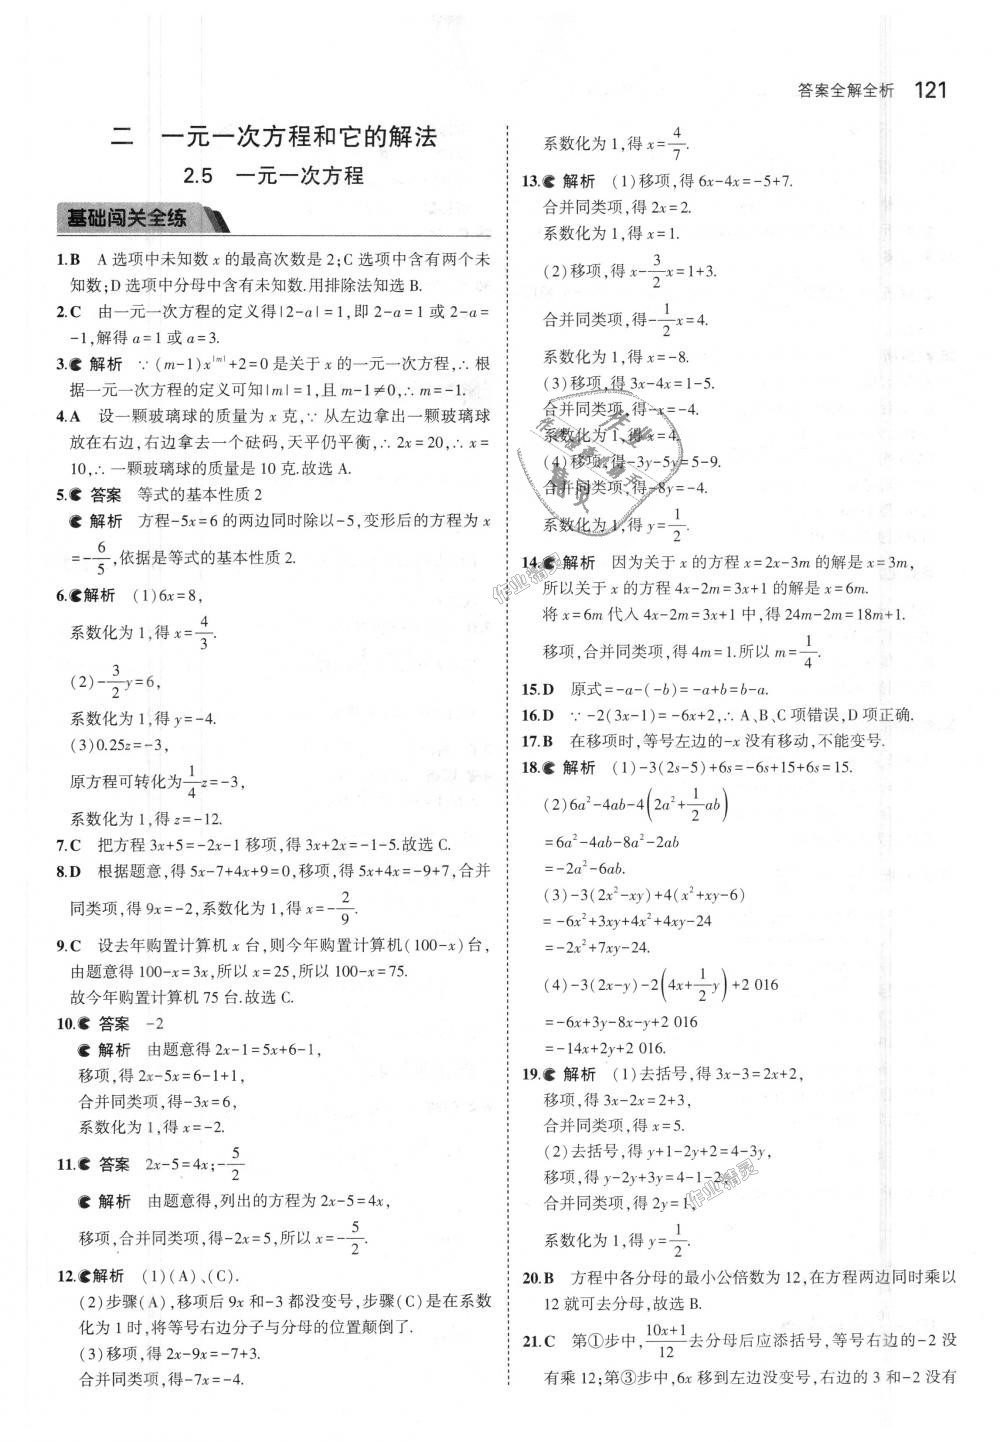 答案全解全析 121
二 一元一次方程和它的解法
2.5 一元一次方程
基础闯关全练
1.B A选项中未知数x的最高次数是2;C选项中含有两个未
知数;D选项中分母中含有未知数.用排除法知选B.
2.C 由一元一次方程的定义得|2-a|=1,即2-a=1或2-a=
-1,解得a=1或a=3.
3. 解析 ∵(m-1)x^|m|+2=0是关于x的一元一次方程,∴根
据一元一次方程的定义可知|m|=1,且m-1≠0,∴m=-1.
4.A 设一颗玻璃球的质量为x克,∵从左边拿出一颗玻璃球
放在右边,右边拿去一个砝码,天平仍平衡,∴2x=20,∴x=
10,∴一颗玻璃球的质量是10克.故选A.
5. 答案 等式的基本性质2
解析 方程-5x=6的两边同时除以-5,变形后的方程为x
=-6/5,依据是等式的基本性质2.
6. 解析 (1)6x=8,
系数化为1,得x=4/3.
(2)-3/2y=6,
系数化为1,得y=-4.
(3)0.25z=-3,
原方程可转化为1/4z=-3,
系数化为1,得z=-12.
7.C 把方程3x+5=-2x-1移项,得3x+2x=-1-5.故选C.
8.D 根据题意,得5x-7+4x+9=0,移项,得5x+4x=-9+7,合并
同类项,得9x=-2,系数化为1,得x=-2/9.
9.C 设去年购置计算机x台,则今年购置计算机(100-x)台,
由题意得100-x=3x,所以x=25,所以100-x=75.
故今年购置计算机75台.故选C.
10. 答案 -2
解析 由题意得2x-1=5x+6-1,
移项,得2x-5x=6-1+1,
合并同类项,得-3x=6,
系数化为1,得x=-2.
11. 答案 2x-5=4x;-5/2
解析 由题意得,列出的方程为2x-5=4x,
移项,合并同类项,得-2x=5,所以x=-5/2.
12. 解析 (1)(A)、(C).
(2)步骤(A),移项后9x和-3都没变号,步骤(C)是在系数
化为1时,将等号右边分子与分母的位置颠倒了.
(3)移项,得2x-9x=-7+3.
合并同类项,得-7x=-4.
系数化为1,得x=4/7.
13. 解析 (1)移项,得6x-4x=-5+7.
合并同类项,得2x=2.
系数化为1,得x=1.
(2)移项,得x-3/2x=1+3.
合并同类项,得-1/2x=4.
系数化为1,得x=-8.
(3)移项,得3x-4x=1-5.
合并同类项,得-x=-4.
系数化为1,得x=4.
(4)移项,得-3y-5y=5-9.
合并同类项,得-8y=-4.
系数化为1,得y=1/2.
14. 解析 因为关于x的方程x=2x-3m的解是x=3m,
所以关于x的方程4x-2m=3x+1的解是x=6m.
将x=6m代入4x-2m=3x+1中,得24m-2m=18m+1.
移项,合并同类项,得4m=1.所以m=1/4.
15.D 原式=-a-(-b)=-a+b=b-a.
16.D ∵-2(3x-1)=-6x+2,∴A、B、C项错误,D项正确.
17.B 在移项时,等号左边的-x没有移动,不能变号.
18. 解析 (1)-3(2s-5)+6s=-6s+15+6s=15.
(2)6a²-4ab-4(2a²+1/2ab)
=6a²-4ab-8a²-2ab
=-2a²-6ab.
(3)-3(2x²-xy)+4(x²+xy-6)
=-6x²+3xy+4x²+4xy-24
=-2x²+7xy-24.
(4)-3(2x-y)-2(4x+1/2y)+2 016
=-6x+3y-8x-y+2 016
=-14x+2y+2 016.
19. 解析 (1)去括号,得3x-3=2x+2,
移项,得3x-2x=2+3,
合并同类项,得x=5.
(2)去括号,得y+1-2y+2=4-3y,
移项,得y-2y+3y=4-1-2,
合并同类项,得2y=1,
系数化为1,得y=1/2.
20.B 方程中各分母的最小公倍数为12,在方程两边同时乘以
12就可去分母,故选B.
21.C 第①步中,10x+1/12去分母后应添括号,等号右边的-2没
有乘12;第③步中,6x移到左边没变号,右边的3和-2没有
作业精灵
作业精灵